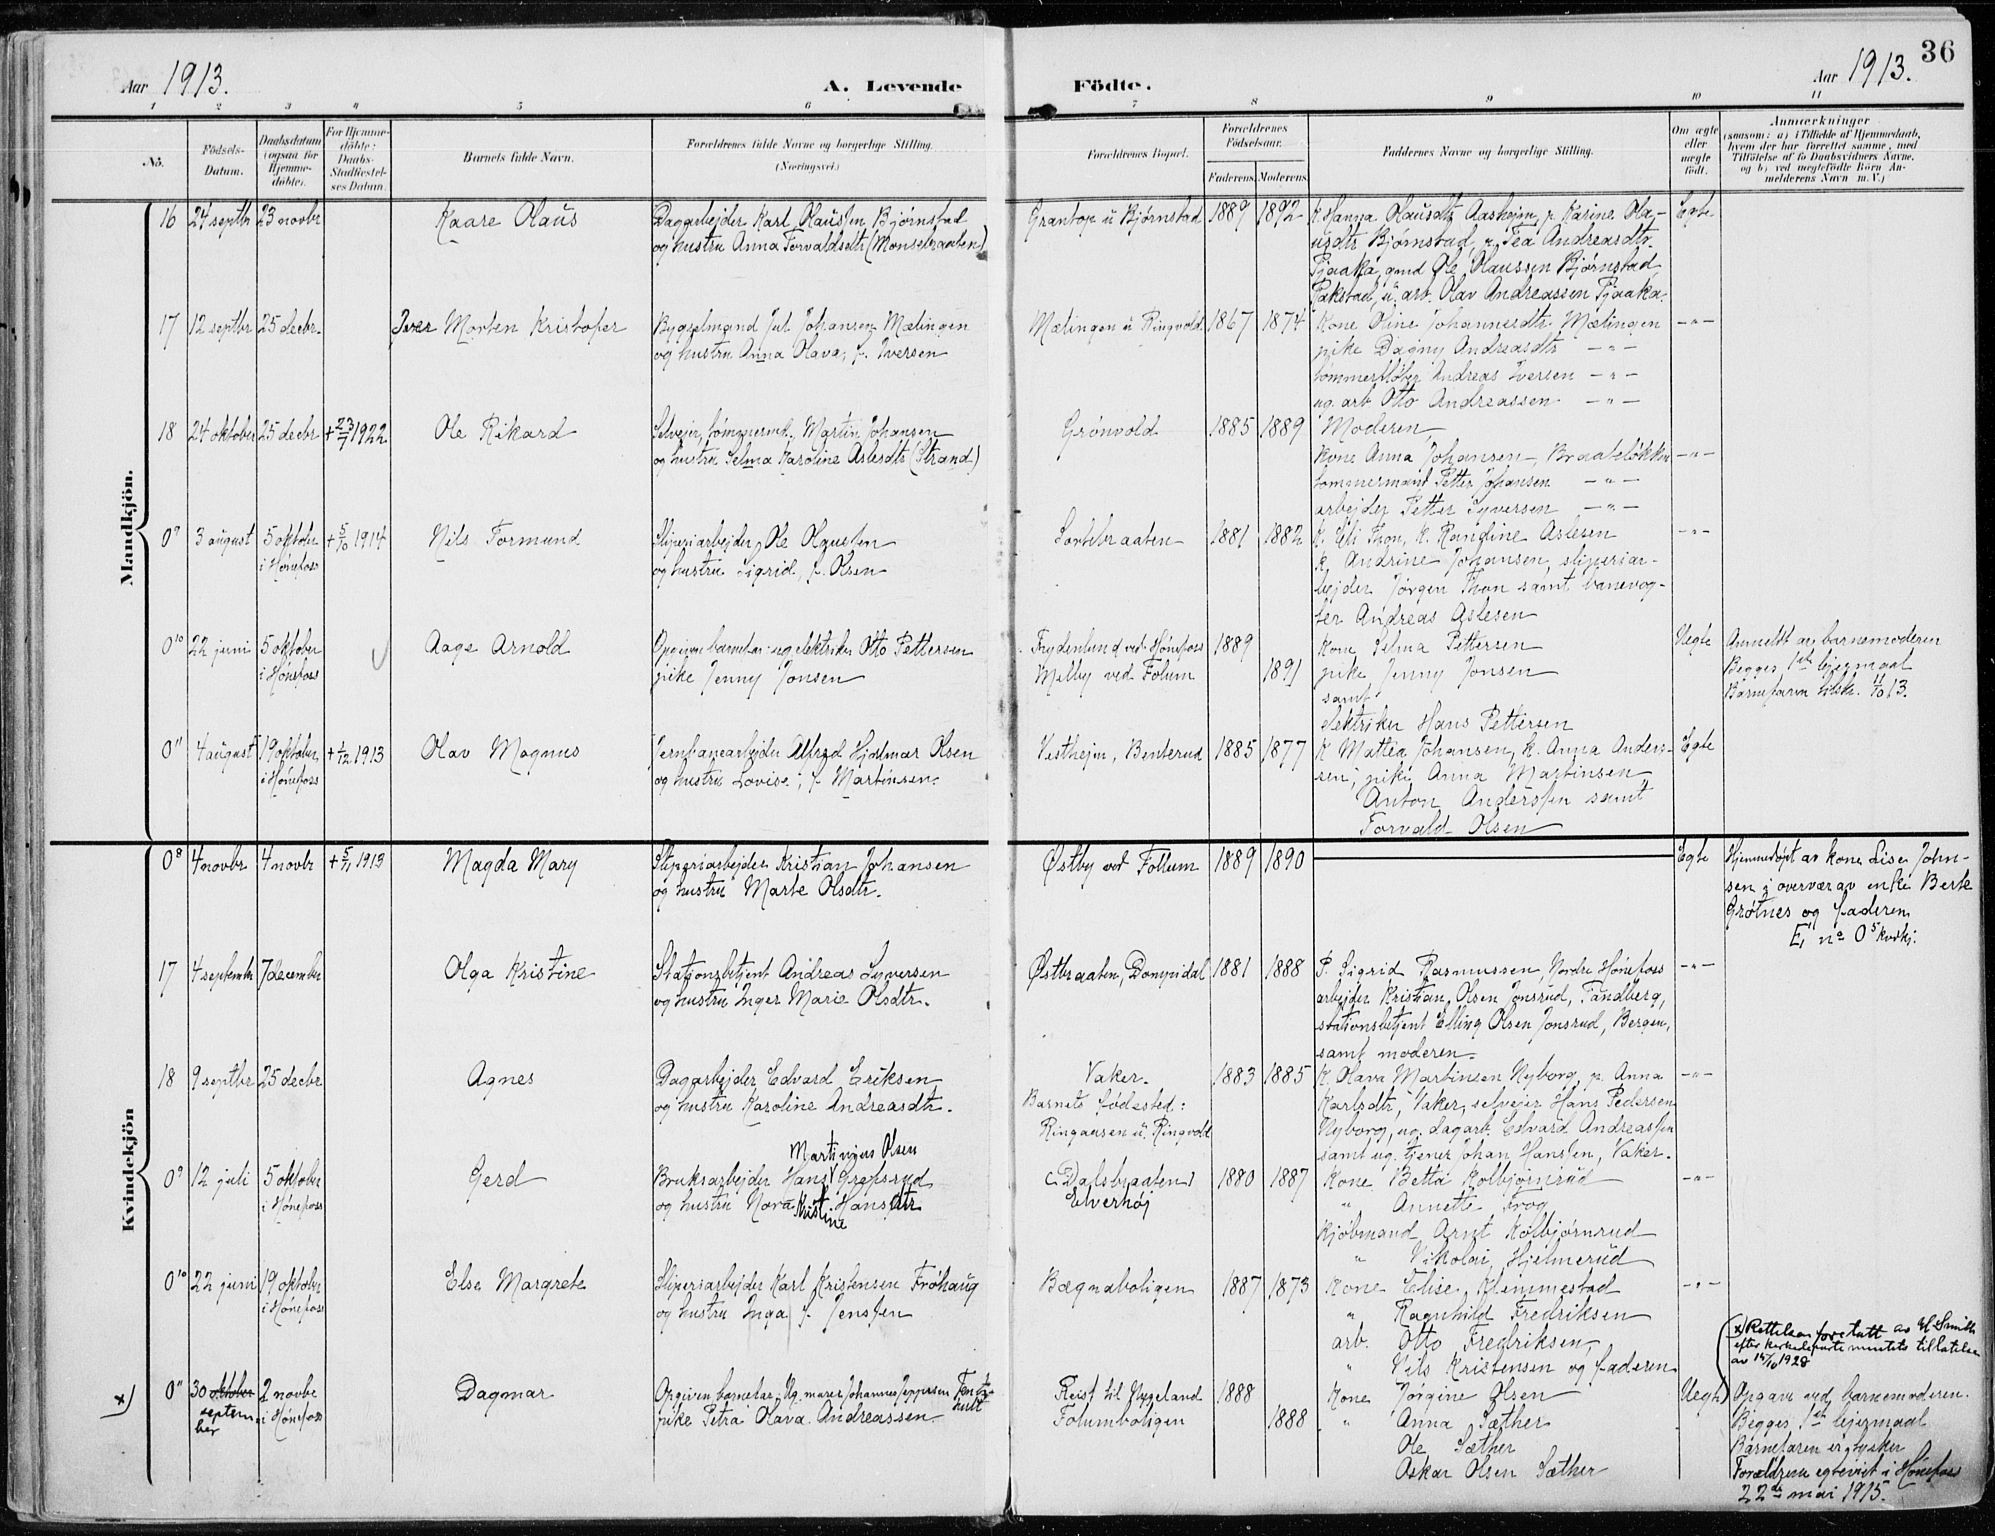 Aar 1913.
A. Levende
Födte.
Aar 1913.
36
1 2 3 4 5 6 7 8 9 10 11
No.
Födsels-
Datum.
Daabsdatum
(ogsaa for
Hjemme-
döbte).
For Hjemme-
döbte:
Daabs-
Stadfæstel-
ses Datum.
Barnets fulde Navn.
Forældrenes fulde Navne og borgerlige Stilling.
(Næringsvei.)
Forældrenes Bopæl.
Forældrenes
Födselsaar.
Faderens. Moderens.
Faddernes Navne og borgerlige Stilling.
Om ægte
eller
uægte
födt.
Anmærkninger
(saasom: a) i Tilfælde af Hjemmedaab,
hvem der har forrettet samme, med
Tilföielse af to Daabsvidners Navne,
og b) ved uægtefödte Börn An-
melderens Navn m. V.)
Mandkjön.
16 24 septbr 23 novbr Kaare Olaus
Dagarbejder Karl Olaussen Bjørnstad
og hustru Anna Torvaldsdtr (Monsebraaten)
Grantop u Bjørnstad 1889 1892
K. Hanna Olausdtr Aasheim, p. Kasine Ola-
usdtr Bjørnstad, p. Tea Andreasdtr.
Tjaaka, gmd Ole Olaussen Bjørnstad,
Pakstad, u. arb. Olav Andreassen Tjaaka.
Egte
17 12 septbr 25 decbr. Iver Morten Kristofer
Bygselmand Jul. Johansen Mælingen
og hustru Anna Olava, f. Iversen
Mælingen u Ringvold 1867 1874
Kone Oline Johannesdtr Mælingen
pike Dagny Andreasdtr - " -
tømmerfløter Andreas Iversen - " -
ug. arb. Otto Andreassen - " -
- " -
18 24 oktober 25 decbr + 23/7 1922 Ole Rikard
Selveier, tømmerm. Martin Johansen
og hustru Selma Karoline Aslesdtr (Strand)
Grønvold 1885 1889
Moderen,
Kone Anna Johansen, Braateløkken
tømmermand Petter Johansen - " -
arbejder Petter Syversen - " -
- " -
0⁹ 3 august 5 oktober
i Hønefoss + 5/10 1914 Nils Tormund
Sliperiarbejder Ole Olausen
og hustru Sigrid, f. Olsen
Sortebraaten 1881 1882
K. Eli Thon, K. Randine Aslesen
K. Andrine Johansen, sliperiar-
bejder Jørgen Thon samt banevog-
ter Andreas Aslesen
- " -
0¹⁰ 22 juni 5 oktober
i Hønefoss Aage Arnold
Opgiven barnefar: ug elektriker Otto Pettersen
pike Jenny Jonsen
Frydenlund ved Hønefoss 1889
Melby ved Folum 1891
Kone Selma Pettersen
pike Jenny Jonsen
samt
elektriker Hans Pettersen
Uegte
Anmeldt av barnemoderen
Begges 1ste lejermaal
Barnefaren tilsk. 11/10 13.
0¹¹ 4 august 19 oktober
i Hønefoss + 1/12 1913 Olav Magnus
Jernbanearbejder Alfred Hjalmar Olsen
og hustru Lovise, f. Martinsen.
Vestheim, Benterud 1885 1877
K Mattea Johansen, k. Anna Anders-
sen, pike Anna Martinsen
Anton Anderssen samt
Torvald Olsen
Egte
Kvindekjön
0⁸ 4 novbr 4 novbr + 5/11 1913 Magda Mary
Sliperiarbejder Kristian Johansen
og hustru Marte Olsdtr.
Østby ved Follum 1889 1890
Egte
Hjemmedøpt av kone Lise John-
sen i overvær av enke Berte
Grøtnes og faderen
E, no 0⁵ kvkj.
17 4 september 7 december Olga Kristine
Stationsbetjent Andreas Syversen
og hustru Inger Marie Olsdtr.
Østbraaten, Dompidal 1881 1888
P. Sigrid Rasmussen, Nordre Hønefoss
arbejder Kristian Olsen Jonsrud, Tandberg,
stationsbetjent Elling Olsen Jonsrud, Bergen,
samt moderen.
- " -
18 9 septbr 25 decbr Agnes
Dagarbejder Edvard Eriksen
og hustru Karoline Andreasdtr.
Vaker.
Barnets fødested:
Ringaasen u. Ringvold
1883 1885
K. Olava Martinsen Nyborg, p. Anna
Karlsdtr, Vaker, selveier Hans Pedersen
Nyborg, ug. dagarb. Edvard Andreassen
samt ug. tjener Johan Hansen, Vaker.
- " -
0⁹ 12 juli 5 oktober
i Hønefoss Gerd
Martinius Olsen
Bruksarbejder Hans Gregersrud
og hustru Nora Kristine Hansdtr
(Dalsbraaten)
Elverhøj
1880 1887
Kone Betta Kolbjørnrud
" Annette Frog
Kjøbmand Arnt Kolbjørnsrud
" Nikolai Hjelmerud
- " -
0¹⁰ 22 juni 19 oktober
i Hønefoss Else Margrete
Sliperiarbejder Karl Kristensen Frøhaug
og hustru Inga f. Jenssen
Bægnaboligen 1887 1873
Kone Elise Klemmestad
" Ragnhild Fredriksen
arb. Otto Fredriksen,
" Nils Kristensen og faderen
- " -
x) Rettelsen foretatt av H Smith
efter kirkedepartementets tillatelse
av 15/10 1928
x) 0¹¹ 30 oktober
september 2 novbr
i Hønefoss Dagmar
Opgiven barnefar: Ug. murer Johannes Jeppesen
pike Petra Olava Andreassen
Reist til Nygeland 1888
Folumboligen 1888
Kone Jørgine Olsen
" Anna Sæther
Ole Sæther
Oskar Olsen Sæther
Uegte
Opgave ved barnemoderen.
Begges 1ste lejermaal
Barnefaren er tysker
Forældrene egteviet i Hønefoss
22de mai 1915.